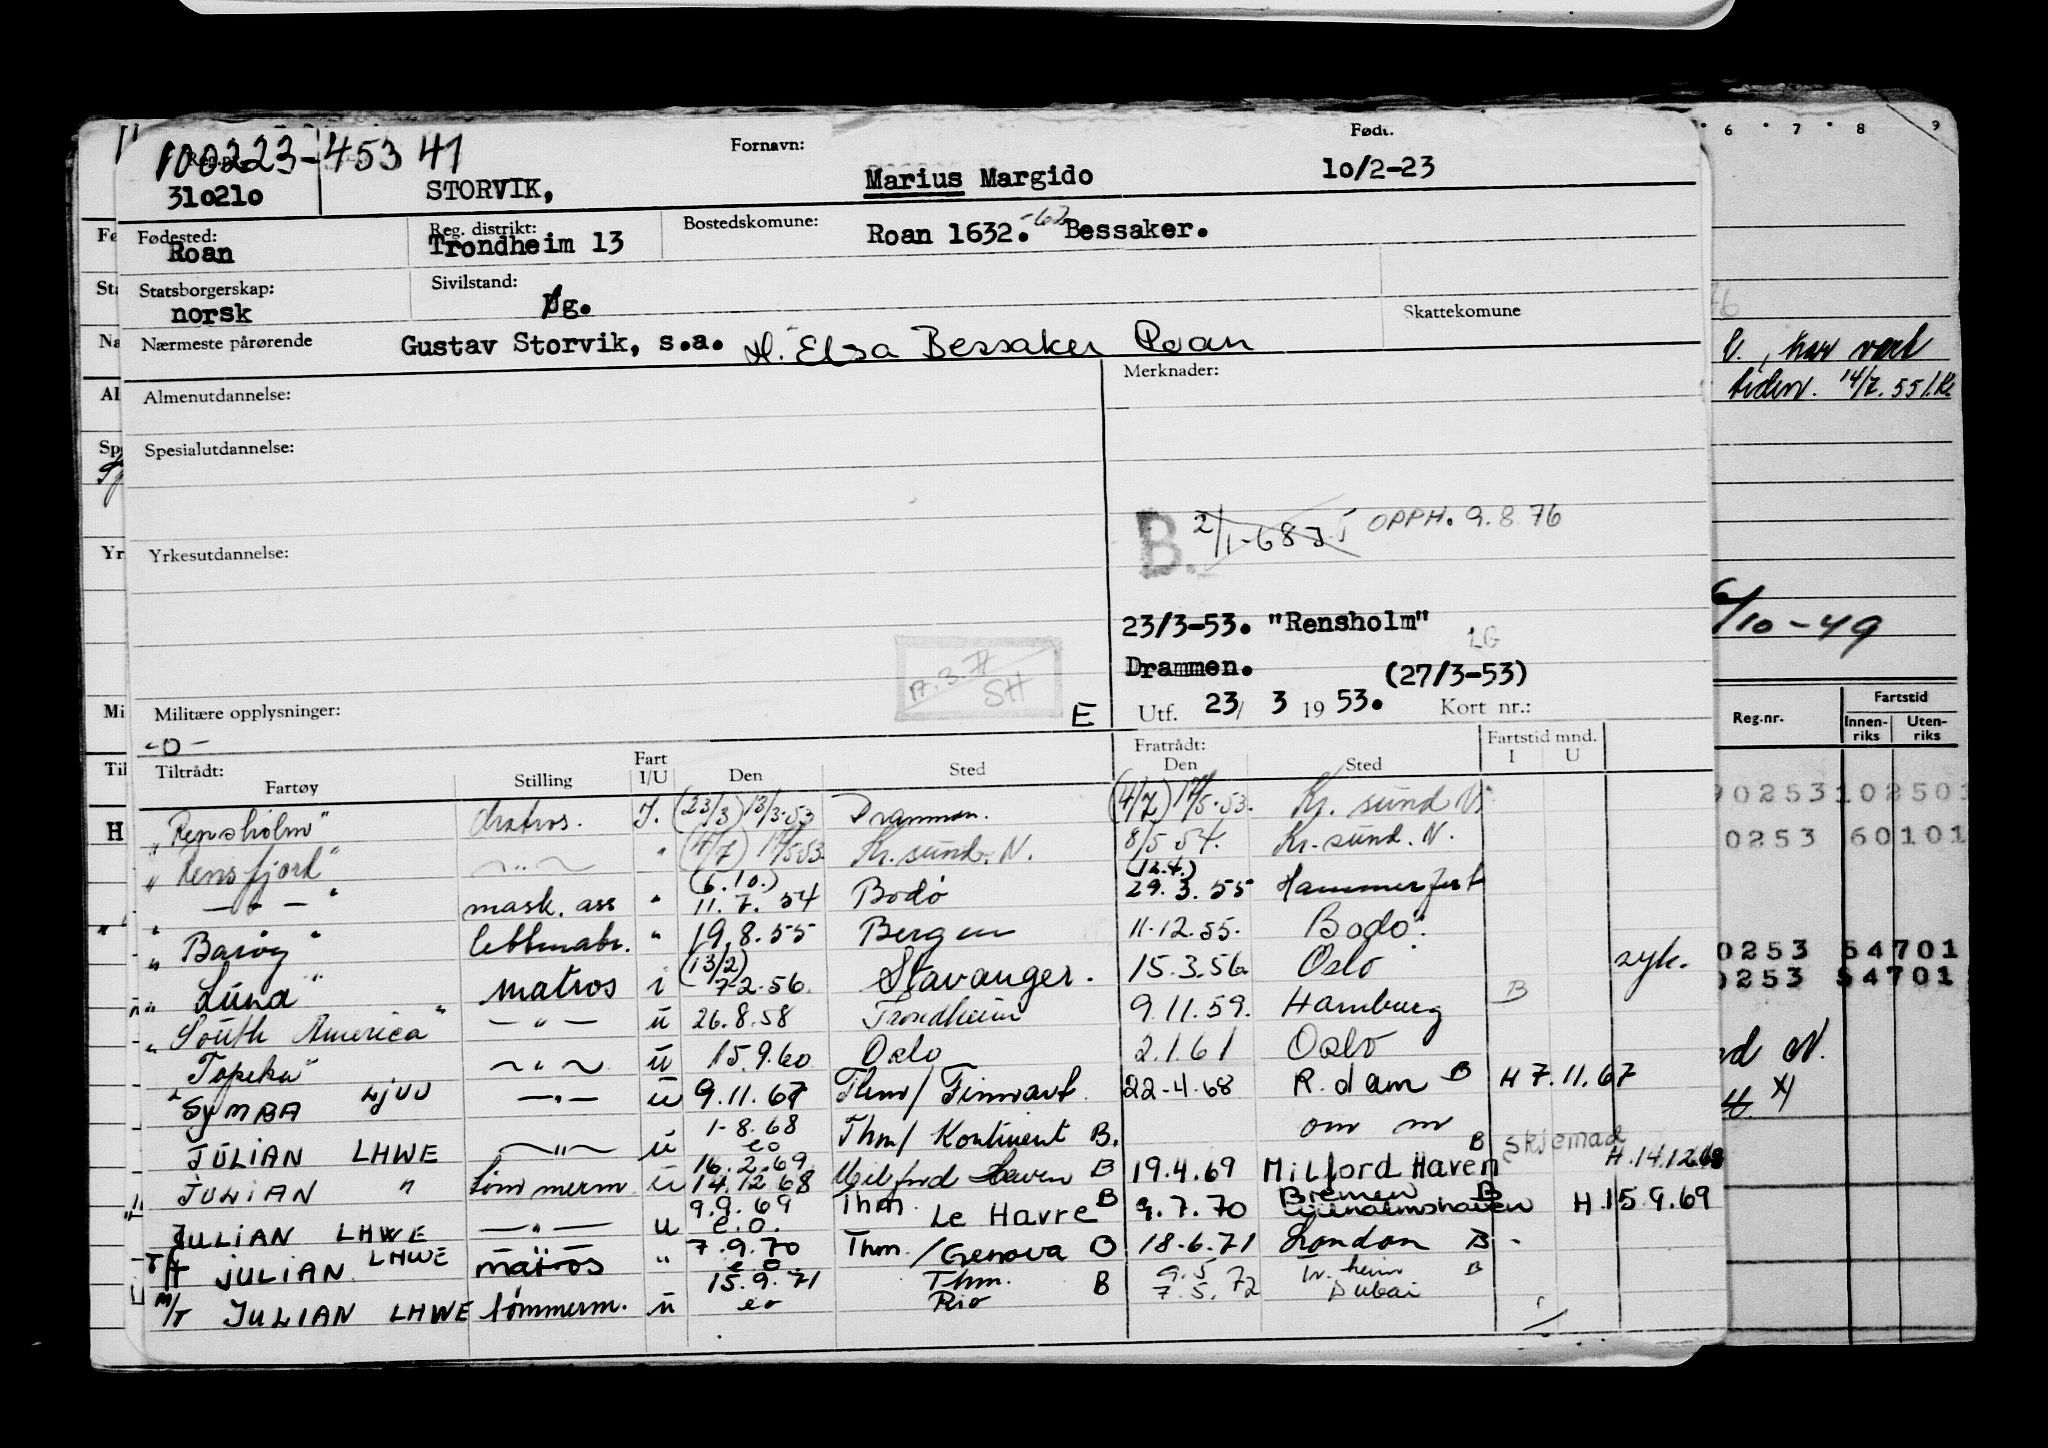 100223-45341
Reg.nr.
310210
STORVIK,
Fornavn:
Marius Margido
Født.
10/2-23
Fødested:
Roan
Reg. distrikt:
Trondheim 13
Bostedskomune:
Roan 1632. -62 Bessaker.
Statsborgerskap:
norsk
Sivilstand:
Ug.
Skattekomune
Nærmeste pårørende
Gustav Storvik, s.a. H. Elsa Bessaker Roan
Almenutdannelse:
Merknader:
Spesialutdannelse:
Yrkesutdannelse:
B. 2/1-68 OPPH. 9.8.76
23/3-53. "Rensholm"
LG
Drammen.
(27/3-53)
SH
E
Utf. 23/ 3 1953. Kort nr.:
Militære opplysninger:
-D-
Tiltrådt:
Fartøy
Stilling
Fart
I/U
Den
Sted
Fratrådt:
Den
Sted
Fartstid mnd.
I U
"Rensholm" Matros. I. (23/3) 13/3.53 Drammen. (4/7) 14/5.53. Kr. sund N.
"Rensfjord" ~"~ " (4/7) 14/5.53 Kr. sund. N. 8/5 54. Kr. sund. N.
"—"—" mask. ass " (6.10.) 11.7.54 Bodø (12.4.) 29.3.55 Hammerfest
"Barøy" lettmatr. " 19.8.55 Bergen 11.12.55. Bodø.
"Lund" matros i (13/2) 7.2.56. Stavanger. 15.3.56 Oslo syk.
"South America" —"— u 26.8.58 Trondheim 9.11.59. Hamburg B
"Topeka" ~"~ u 15.9.60 Oslo 2.1.61 Oslo
"SYMRA LJVU —"— u 9.11.67 Thm/ Finnart 22-4-68 R.dam B H 7.11.67
JULIAN LHWE ~"~ u 1-8.68 eo Thm/ Kontinent B. om m B skjemad
JULIAN " tømmerm u 16.2.69 14.12.68 Milford Haven B 19.4.69 Milford Haven H.14.12.68
JULIAN LHWE —"— u 9.9.69 e.o. Thm. Le Havre B 9.7.70 Bremen B H 15.9.69
T/T JULIAN LHWE matros " 7.9.70 e.o. Thm./Genova O 18.6.71 London B
M/T JULIAN LHWE tømmerm. u 15.9.71 eo Thm. Rio B 9.5 7.5.72 Tr.heim Dubai B
6 7 8 9
har vært
tiden. 14/7.55
/10-49
Reg.nr.
Fartstid
Innen-
riks
Uten-
riks
0253 60101
0253 54701
0253 54701